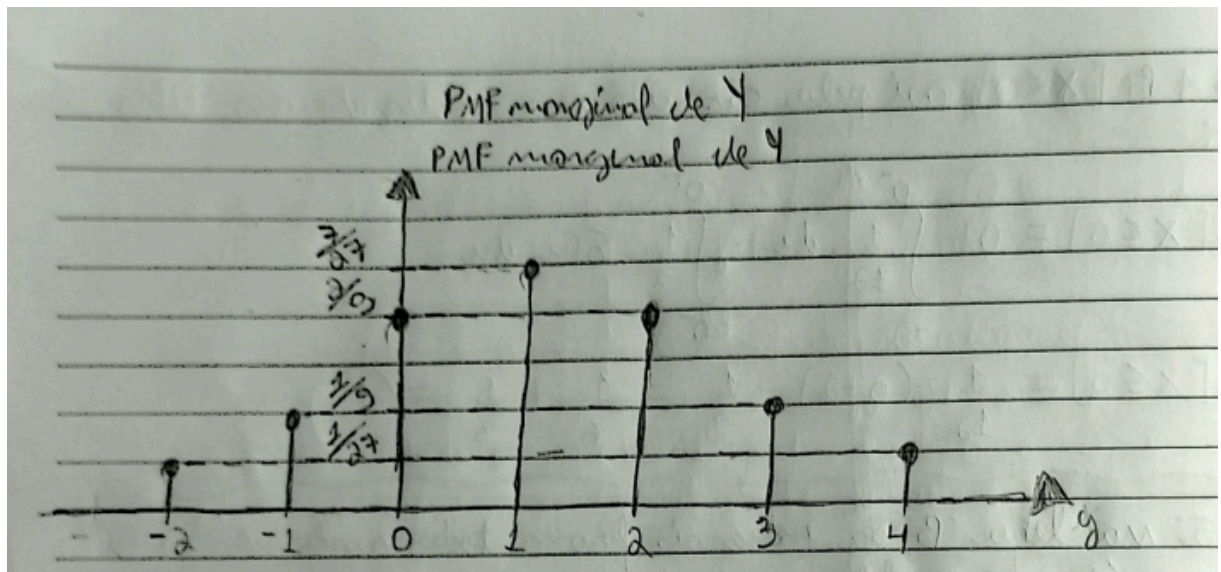 PMF marginal de Y
PMF marginal de Y
7/27
2/9
1/9
1/27
-2 -1 0 1 2 3 4 y